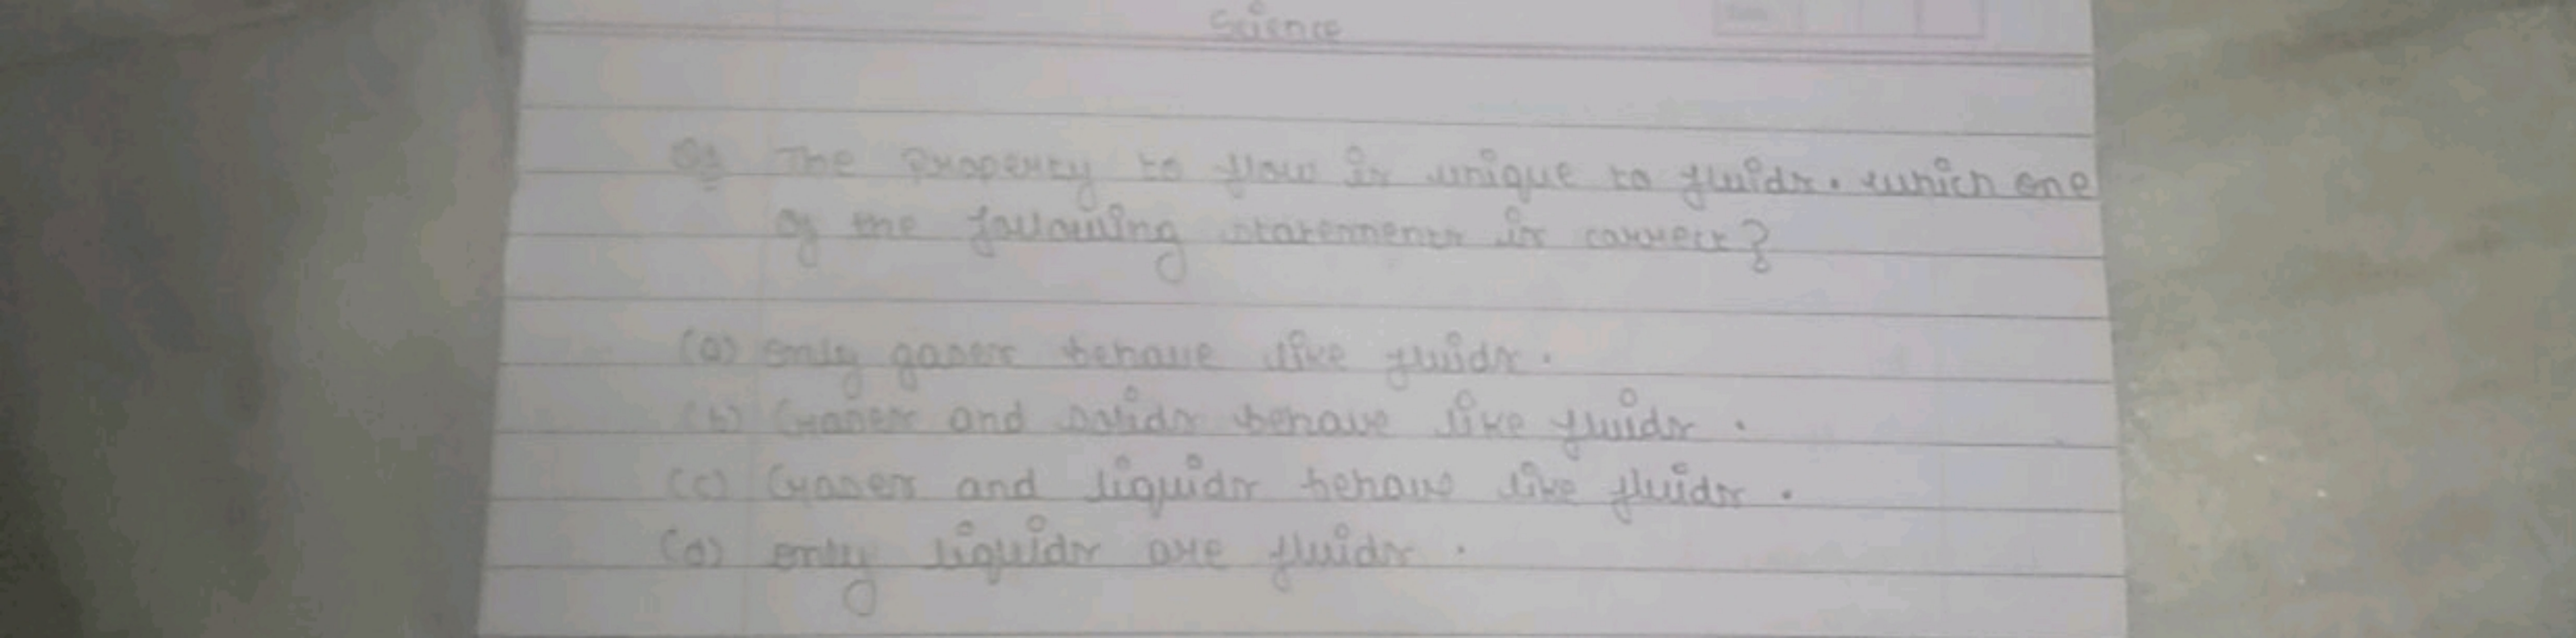 Science
The property to flow is unique to fluids. which one
of the following statements is correct?
(a) only gases behave like fluids.
(b) Gases and solids behave like fluids.
(c) Gases and liquids behave like fluids.
(d) only liquids are fluids.